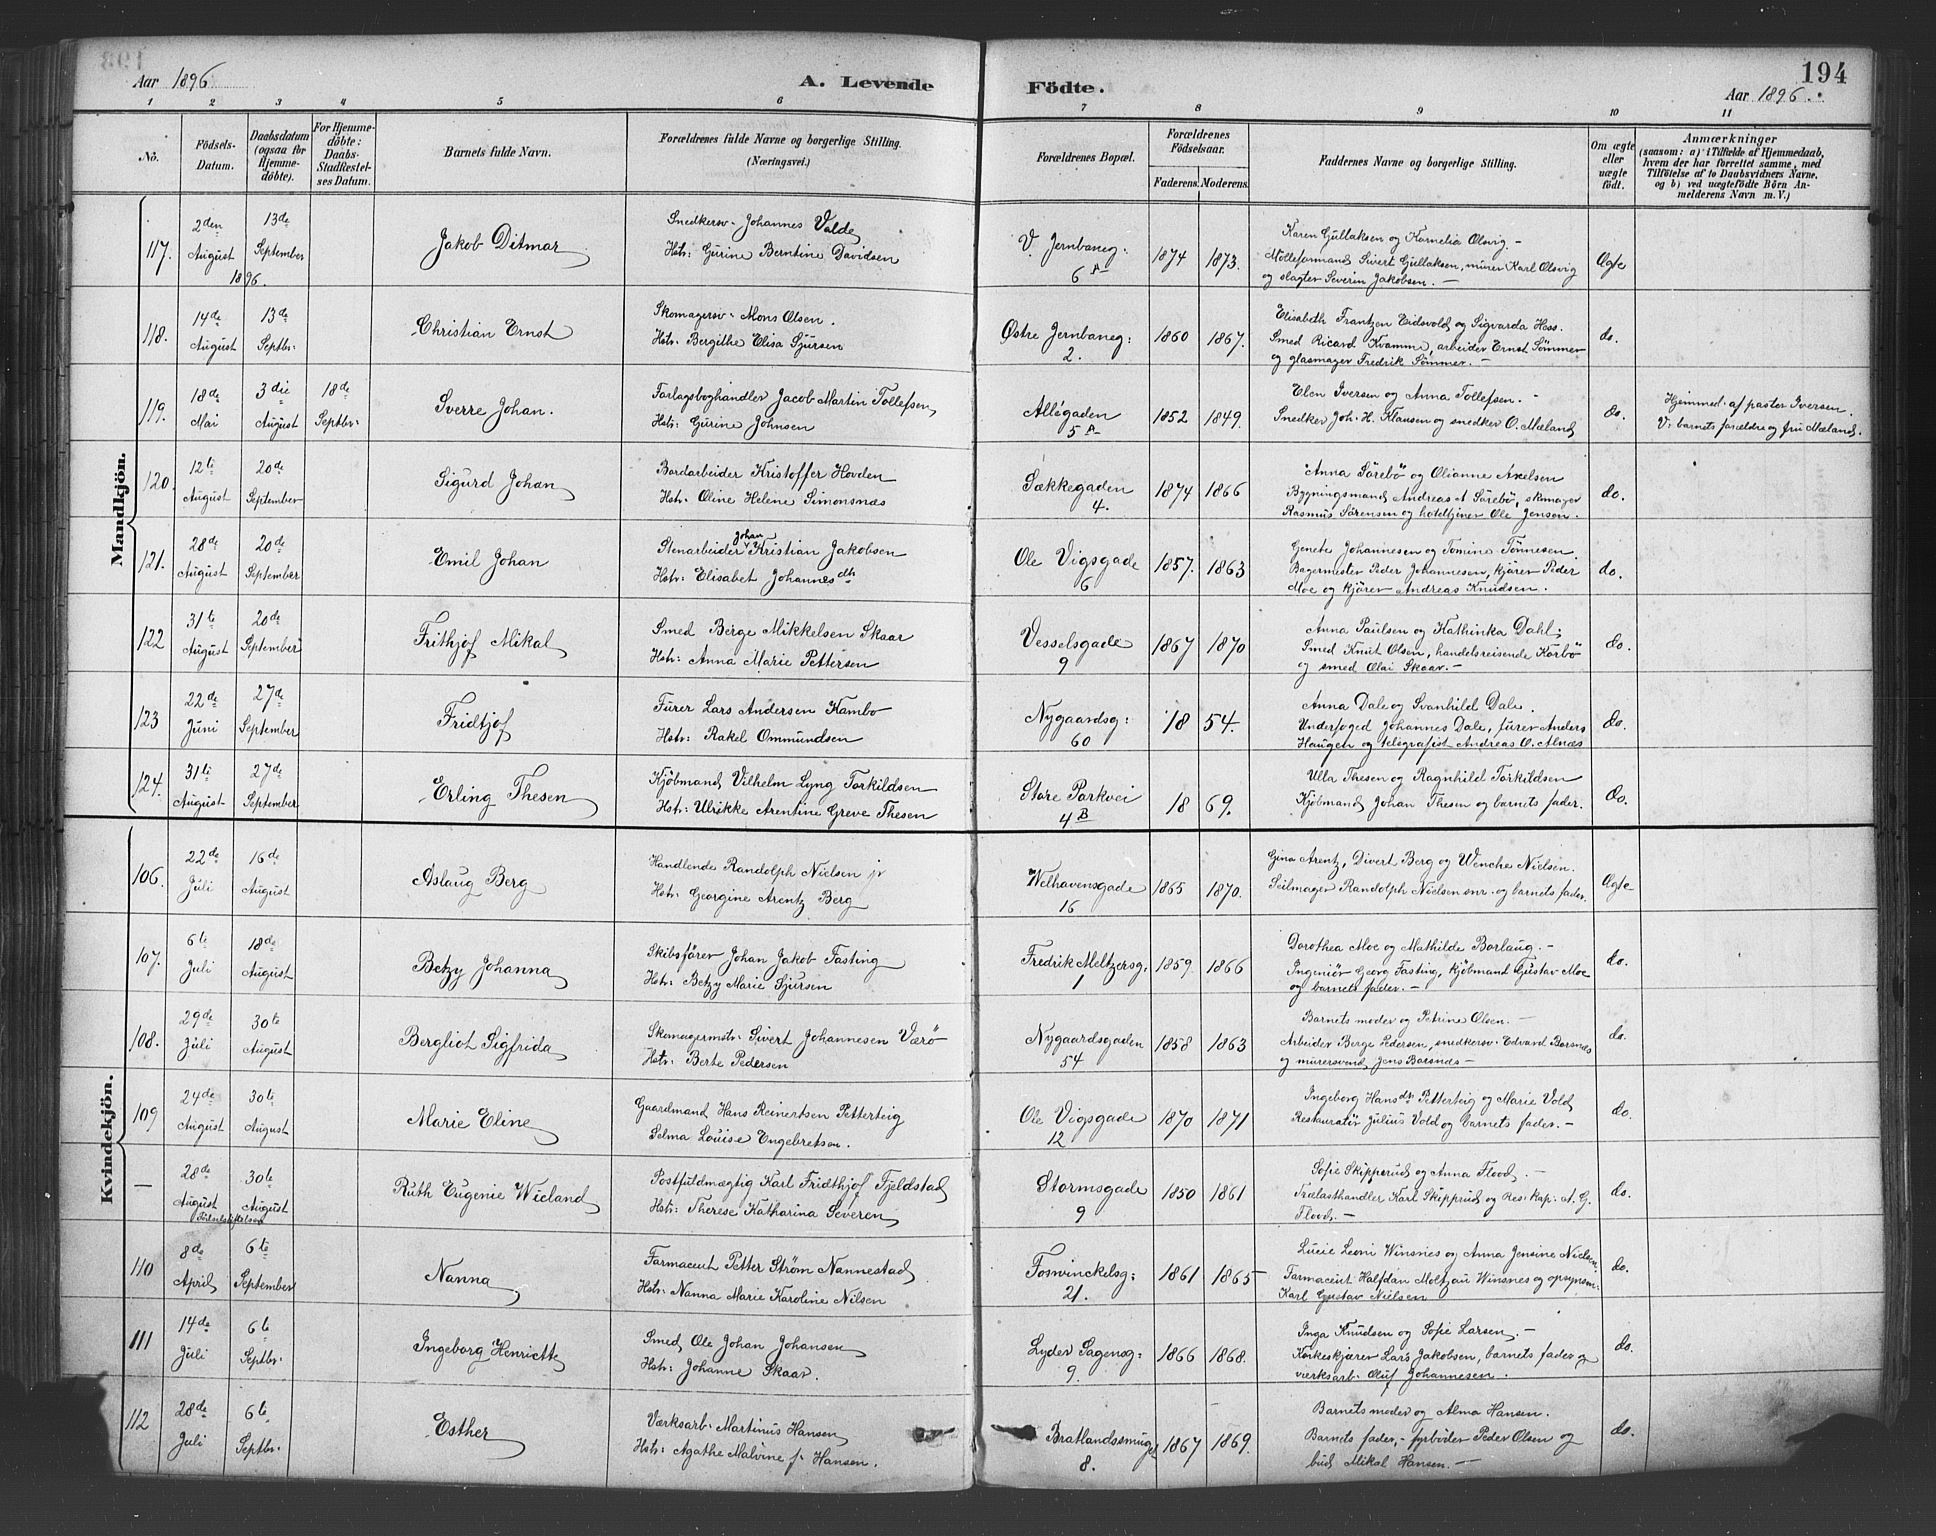 194
Aar 1896.
A. Levende
Födte.
Aar 1896.
1 2 3 4 5 6 7 8 9 10 11
No.
Födsels-
Datum.
Daabsdatum
(ogsaa for
Hjemme-
döbte).
For Hjemme-
döbte:
Daabs-
StadRestel-
ses Datum.
Barnets fulde Navn.
Forældrenes fulde Navne og borgerlige Stilling.
(Næringsvei.)
Forældrenes Bopæl.
Forældrenes
Födselsaar.
Faderens. Moderens.
Faddernes Navne og borgerlige Stilling.
Om ægte
eller
uægte
födt.
Anmærkninger
(saasom: a) i Tilfælde af Hjemmedaab,
hvem der har forrettet samme, med
Tilföielse af to Daabsvidners Navne,
og b) ved uægtefödte Börn An-
melderens Navn m. V.)
Mandkjön.
117.
2den
August
1896.
13de
September
Jakob Ditmar
Snedkersv. Johannes Valde
Hstr: Gurine Berntine Davidsen
V. Jernbaneg:
6 A
1874 1873.
Karen Gullaksen og Kornelia Olsvig. –
Mölleformand Sivert Gullaksen, murer Karl Olsvig
og slagter Severin Jakobsen. –
Ægte
118.
14de
August
13de
Septbr:
Christian Ernst
Skomagersv. Mons Olsen.
Hstr: Bergithe Elisa Sjursen
Østre Jernbaneg:
2.
1860 1867.
Elisabeth Frantzen Eidsvold og Sigvarda Hess.
Smed Ricard Kvamme, arbeider Ernst Sømmer
og glasmager Fredrik Sömmer. –
do.
119.
18de
Mai
3die
August
18de
Septbr:
Sverre Johan.
Forlagsboghandler Jacob Martin Tollefsen
Hstr: Gurine Johnsen
Allégaden
5 A
1852 1849.
Elen Iversen og Anna Tollefsen. –
Snedker Joh. H. Klausen og snedker O. Mæland
do.
Hjemmed. af pastor Iversen.
V: barnets forældre og fru Mæland.
120.
12te
August
20de
September
Sigurd Johan
Bordarbeider Kristoffer Hovden
Hstr: Oline Helene Simonsnæs
Sækkegaden
4.
1874 1866
Anna Sörebö og Olianne Axelsen
Bygningsmand Andreas A Sörebö, skomager
Rasmus Sörensen og hoteltjener Ole Jensen.
do.
121.
28de
August
20de
September
Emil Johan
Johan
Stenarbeider Kristian Jakobsen
Hstr: Elisabet Johannesdtr
Ole Vigsgade
6
1857. 1863
Genete Johannesen og Tomine Tönnesen
Bagermester Peder Johannesen, kjörer Peder
Moe og kjörer Andreas Knudsen.
do.
122
31te
August
20de
September
Frithjof Mikal
Smed Berge Mikkelsen Skaar
Hstr: Anna Marie Pettersen
Vesselsgade
9
1867 1870
Anna Paulsen og Kathinka Dahl;
Smed Knut Olsen, handelsreisende Korbö
og smed Olai Skaar. –
do.
123
22de
Juni
27de
September
Fridtjof
Furer Lars Andersen Kambo
Hstr: Rakel Ommundsen
Nygaardsg:
60
18 54.
Anna Dale og Svanhild Dale.
Underfoged Johannes Dale, furer Anders
Haugen og telegrafist Andreas O. Alnæs
do.
124.
31te
August
27de
September
Erling Thesen
Kjöbmand Vilhelm Lyng Torkildsen
Hstr: Ulrikke Arentine Greve Thesen
Store Parkvei
4 B
18 69.
Ulla Thesen og Ragnhild Torkildsen
Kjöbmand Johan Thesen og barnets fader.
do.
Kvindekjön.
106.
22de
Juli
16de
August
Aslaug Berg
Handlende Randolph Nielsen jr
Hstr: Georgine Arentz Berg
Welhavensgade
16
1865 1870.
Gina Arentz, Divert Berg og Wenche Nielsen.
Seilmager Randolph Nielsen snr. og barnets fader.
Ægte
107.
6te
Juli
18de
August
Betzy Johanna
Skibsförer Johan Jakob Fasting
Hstr: Betzy Marie Sjursen
Fredrik Meltzersg.
1
1859. 1866
Dorothea Moe og Mathilde Borlaug. –
Ingeniör Georg Fasting, kjöbmand Gustav Moe
og barnets fader. –
do.
108.
29de
Juli
30te
August
Bergliot Sigfrida
Skomagermstr. Sivert Johannesen Værö
Hstr: Berte Pedersen
Nygaardsgaden
54
1858 1863
Barnets moder og Petrine Olsen. –
Arbeider Berge Pedersen, snedkersv. Edvard Borsnæs
og murersvend Jens Borsnæs –
do.
109
24de
August
30te
August
Marie Eline
Gaardmand Hans Reinertsen Petterteig
Selma Louise Engebretsen.
Ole Vigsgade
12
1870 1871
Ingeborg Hansdtr Petterteig og Marie Vold
Restauratör Julius Vold og barnets fader. –
do.
–
28de
August
30te
August
Ruth Eugenie Wieland
Postfuldmægtig Karl Fridthjof Fjeldstad
Hstr: Therese Katharina Severen
Stormsgade
9
1850 1861
Sofie Skipperud og Anna Flood. –
Trælasthandler Karl Skipprud og Res: kap: A. G.
Flood. –
do.
110
8de
April
6te
September
Nanna
Farmaceut Petter Ström Nannestad
Hstr: Nanna Marie Karoline Nilsen
Fosvinckelsg:
21.
1861 1865
Lucie Leoni Winsnes og Anna Jensine Nielsen
Farmaceut Halfdan Moltzau Winsnes og opsynsm.
Karl Gustav Nielsen
do.
111
14de
Juli
6te
Septbr.
Ingeborg Henriette
Smed Ole Johan Johansen
Hstr: Johanne Skaar.
Lyder Sagensg:
9.
1866 1868.
Inga Knudsen og Sofie Larsen. –
Korkeskjærer Lars Jakobsen, barnets fader og
værksarb. Oluf Johannesen.
do.
112
28de
Juli
6te
Septbr.
Esther
Værksarb. Martinus Hansen
Hstr: Agathe Malvine f. Hansen.
Bratlandssmuget
8.
1867 1869.
Barnets moder og Alma Hansen.
Barnets fader, – fyrböder Peder Olsen og
bud Mikal Hansen. –
do.